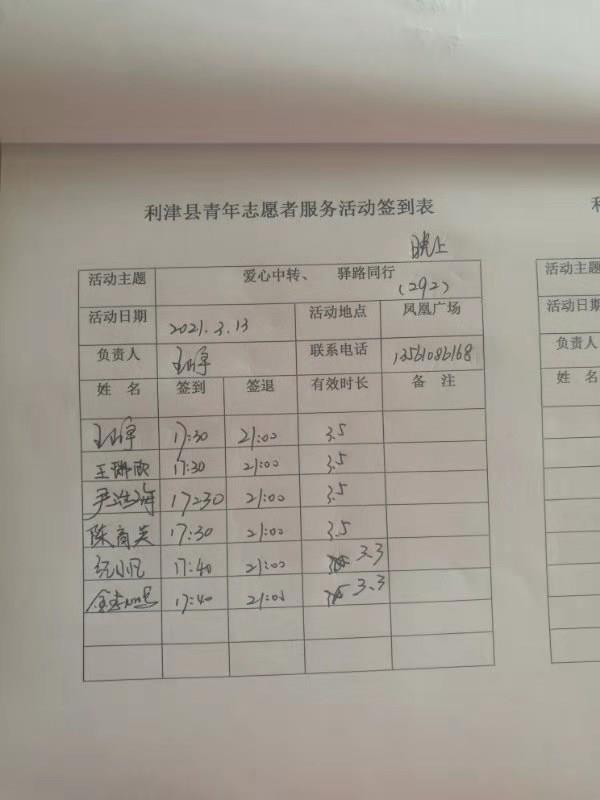 利津县青年志愿者服务活动签到表
晚上
活动主题 爱心中转、 驿路同行 (292)
活动日期 2021.3.13 活动地点 凤凰广场
负责人 联系电话 13561086168
姓 名 签到 签退 有效时长 备 注
17:30 21:00 3.5
王娜欣 17:30 21:00 3.5
17:30 21:00 3.5
陈商英 17:30 21:00 3.5
纪小凡 17:40 21:00 3.3
17:40 21:00 3.3
利
活动主题
活动日期
负责人
姓 名